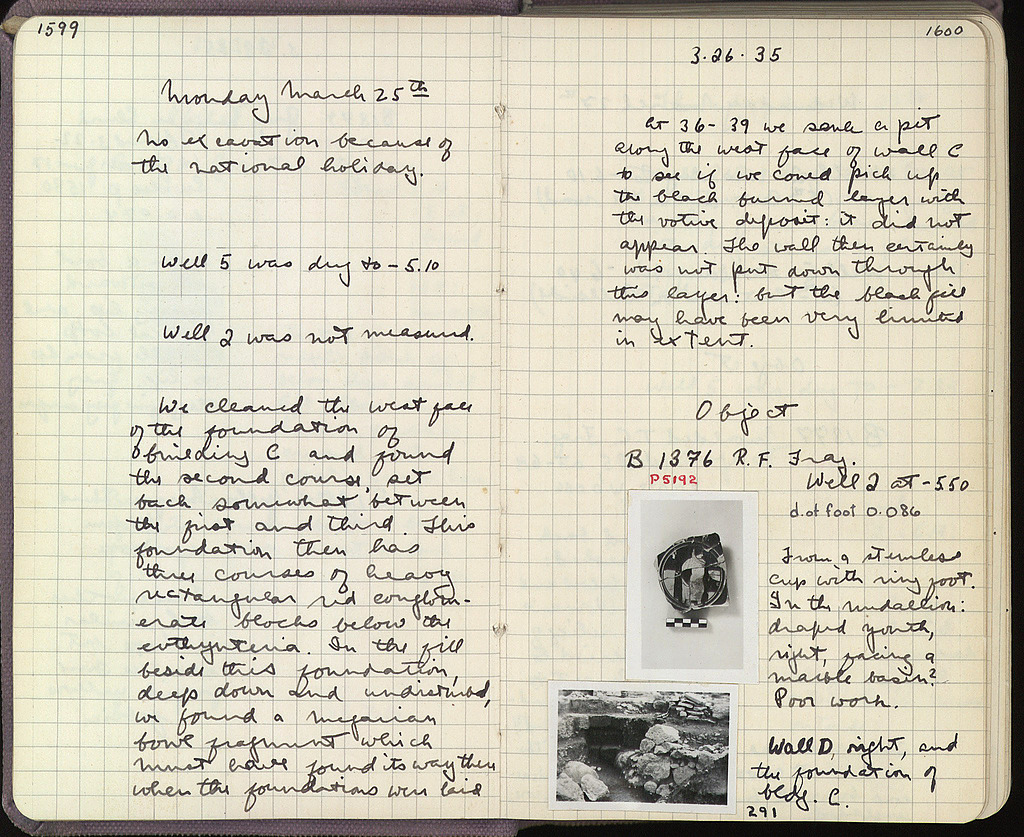 1599
Monday March 25th
No excavation because of
the national holiday.
Well 5 was dug to -5.10
Well 2 was not measured.
We cleaned the west face
of the foundation of
building C and found
the second course set
back somewhat between
the first and third. This
foundation then has
three courses of heavy
rectangular red conglom-
erate blocks below the
euthynteria. In the fill
beside this foundation,
deep down and undisturbed,
we found a megarian
bowl fragment which
must have found its way there
when the foundations were laid
1600
3.26.35
At 36-39 we sank a pit
along the west face of wall C
to see if we could pick up
the black burned layer with
the votive deposit: it did not
appear. The wall then certainly
was not put down through
this layer: but the black fill
may have been very limited
in extent.
Object
B 1376 R.F. Frag.
P5192
Well 2 at -5.50
d. of foot 0.086
From a stemless
cup with ring foot.
In the medallion:
draped youth,
right, facing a
marble basin?
Poor work.
Wall D, right, and
the foundation of
bldg. C.
291